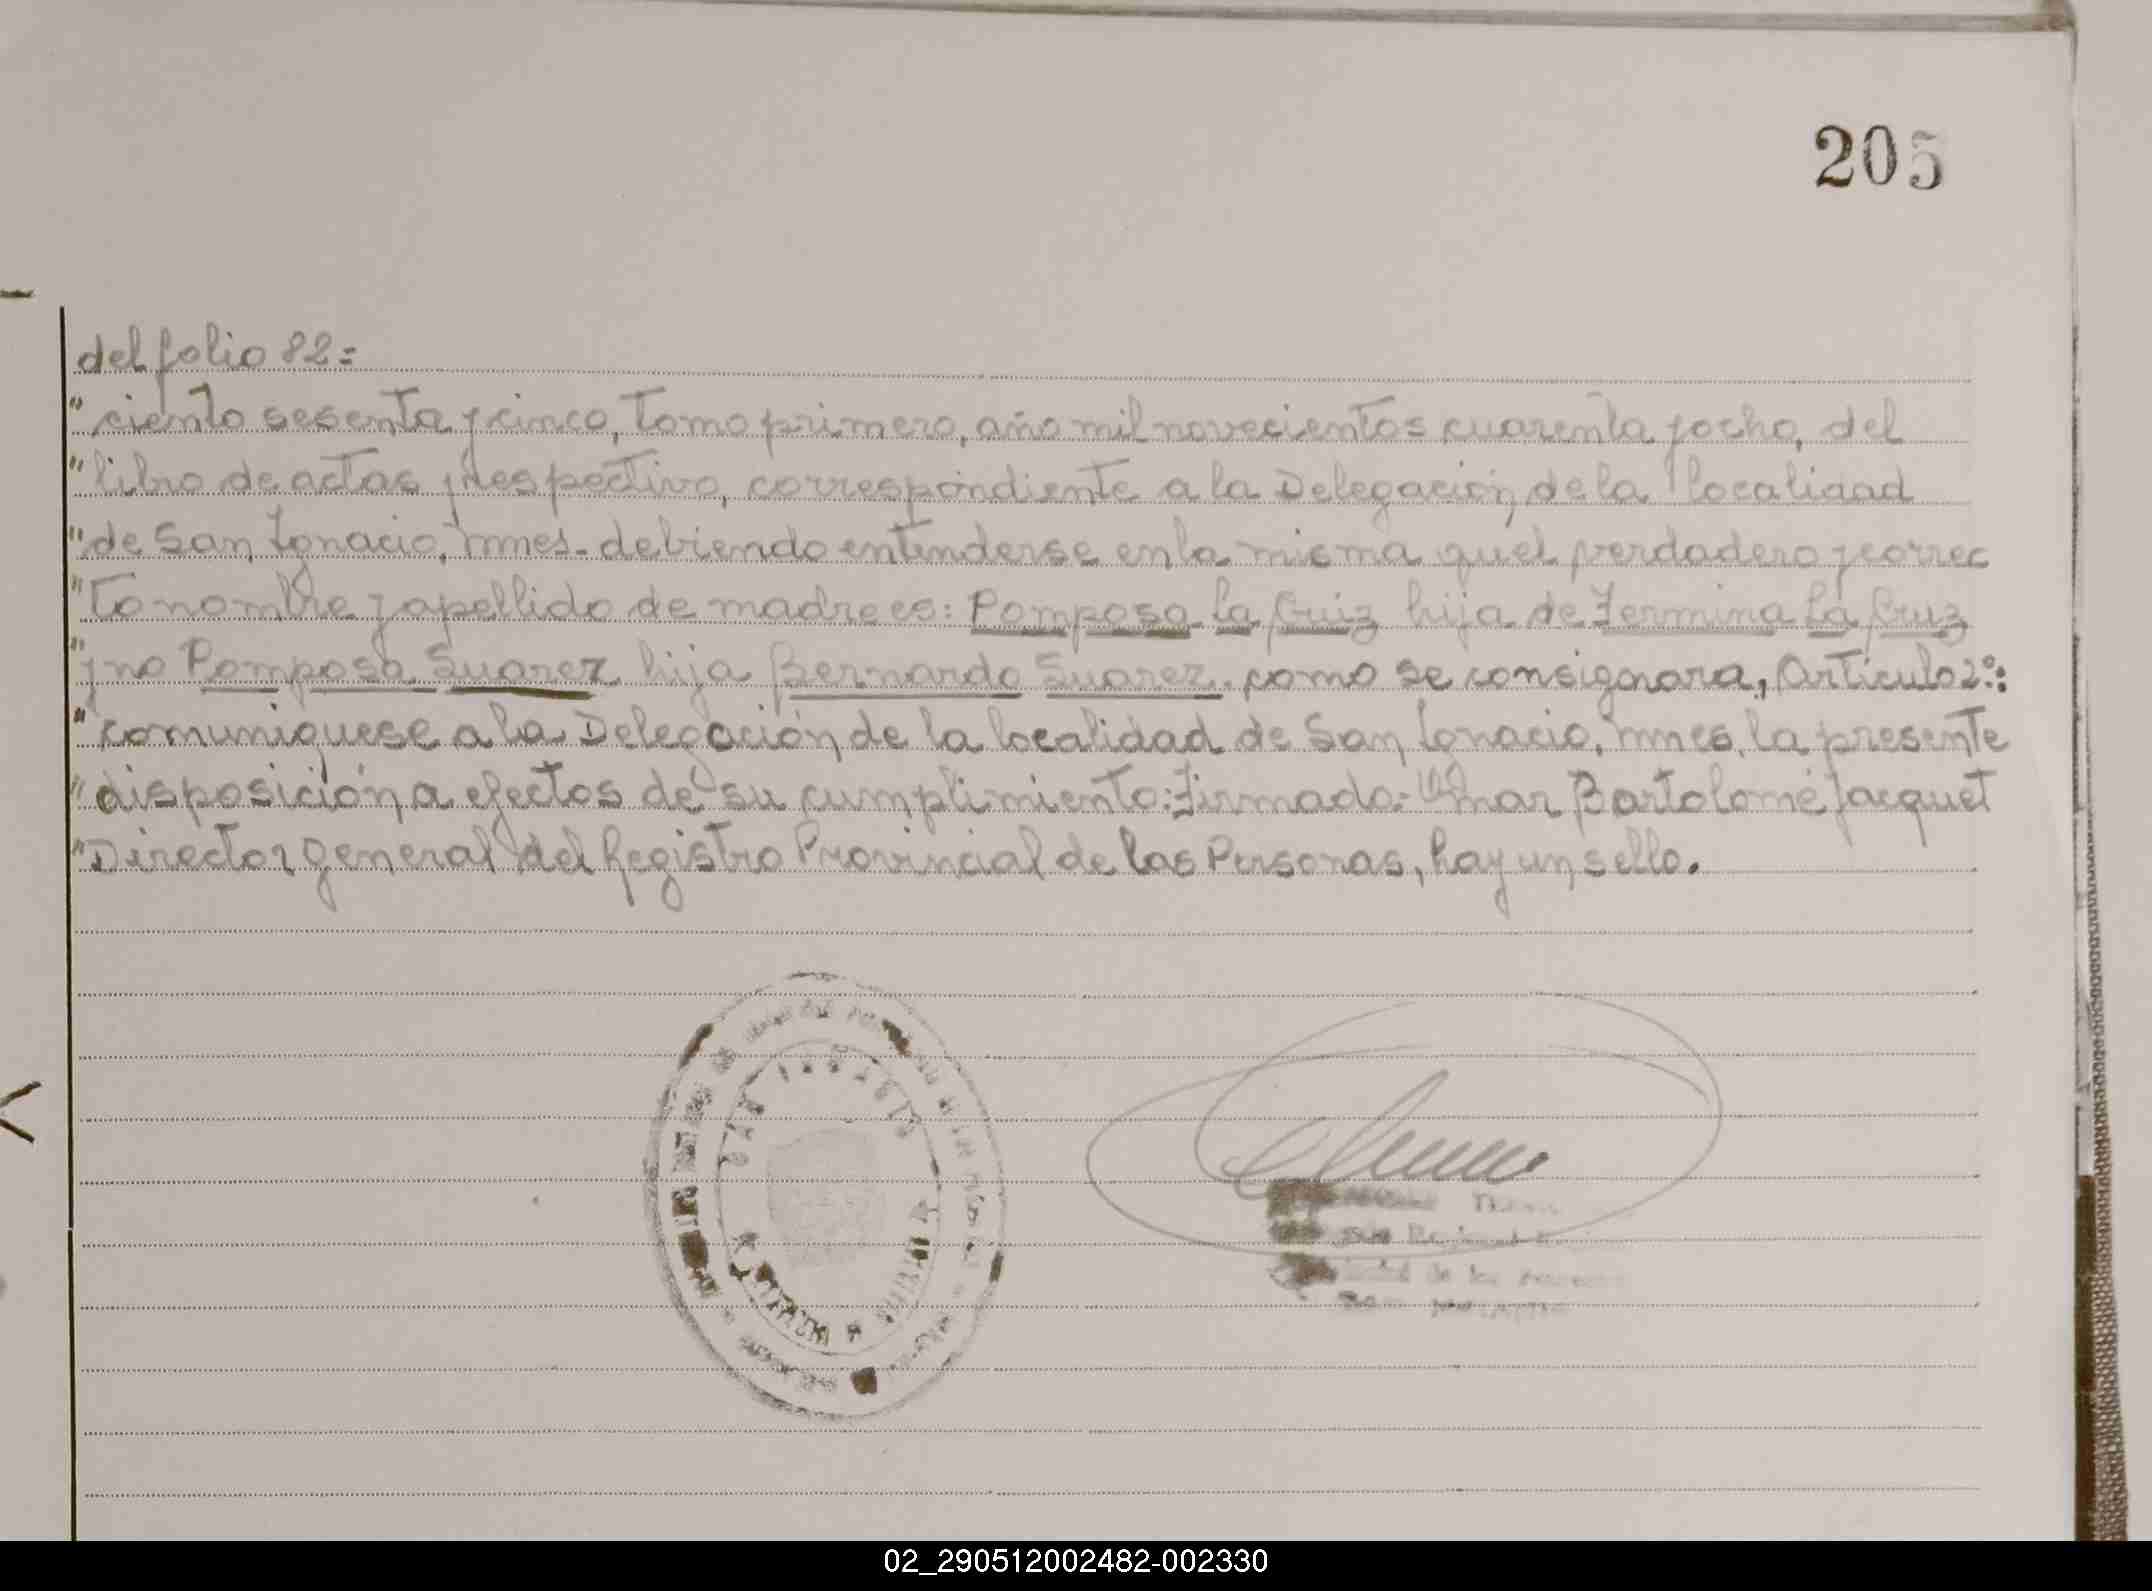 205
del folio 82=
" ciento sesenta y cinco, tomo primero, año mil novecientos cuarenta y ocho, del
" libro de actas y respectivo, correspondiente a la Delegación, de la localidad
" de San Ignacio, mnes. debiendo entenderse en la misma quel verdadero y correc
" to nombre y apellido de madre es: Pomposa la Cruz hija de Fermina La Cruz
" y no Pomposa Suarez hija Bernardo Suarez. como se consignara, Artículo 2º:
" comuniquese a la Delegación de la localidad de San Ignacio, mnes, la presente
" disposición a efectos de su cumplimiento: Firmado:- Omar Bartolomé Jacquet
" Director general del Registro Provincial de las Personas, hay un sello.
de las
02_290512002482-002330